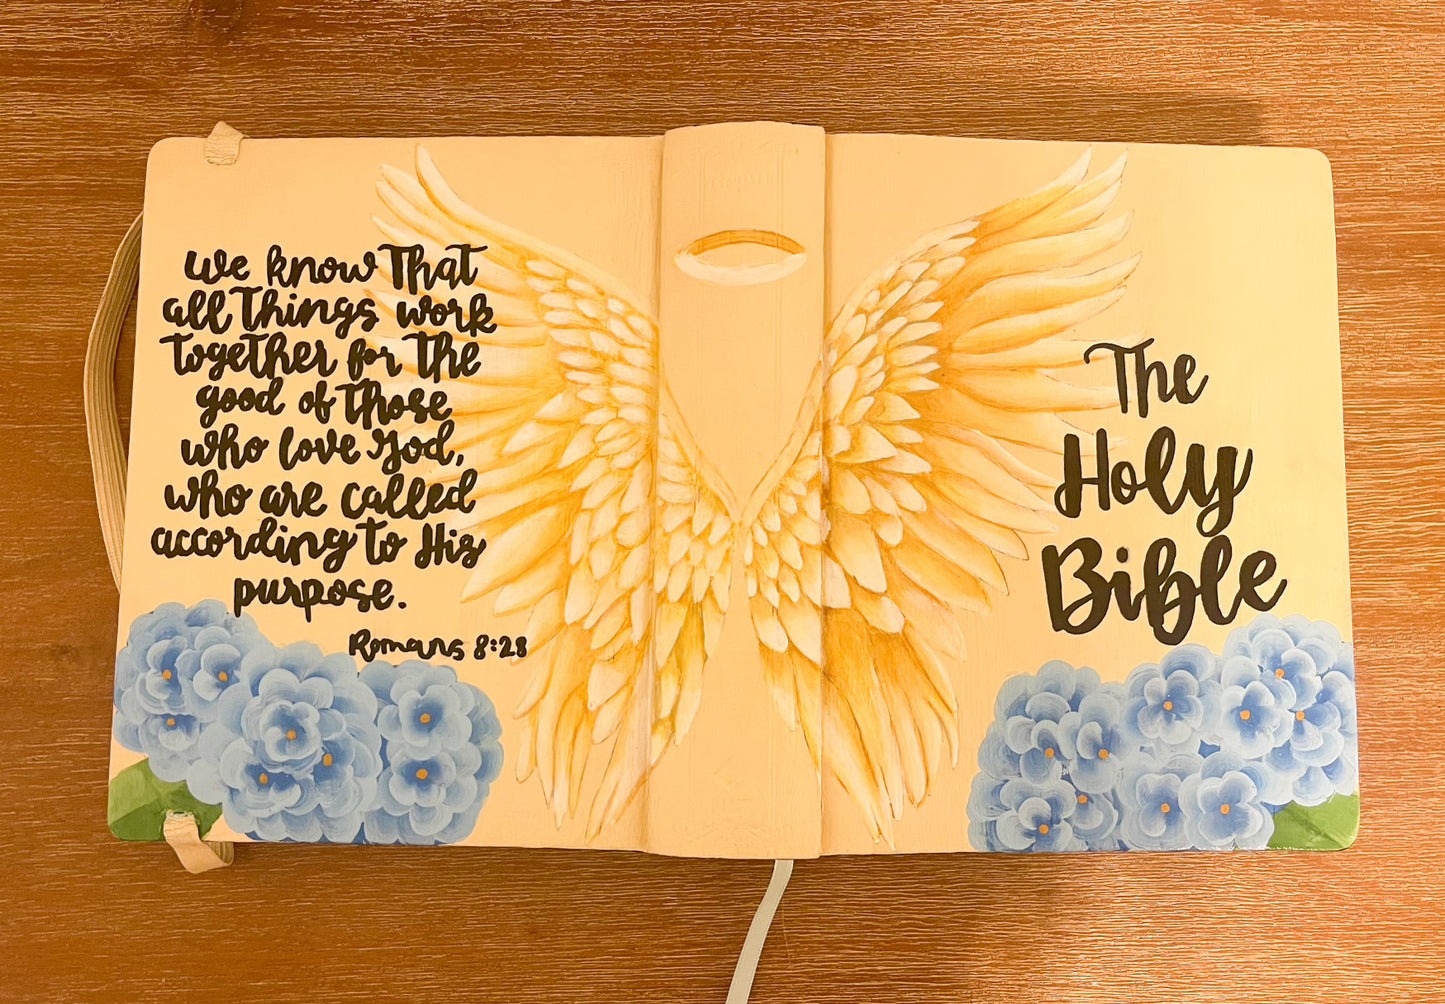 we know That
all Things work
together for the
good of those
who love God,
who are called
according to His
purpose.
Romans 8:28
The
Holy
Bible